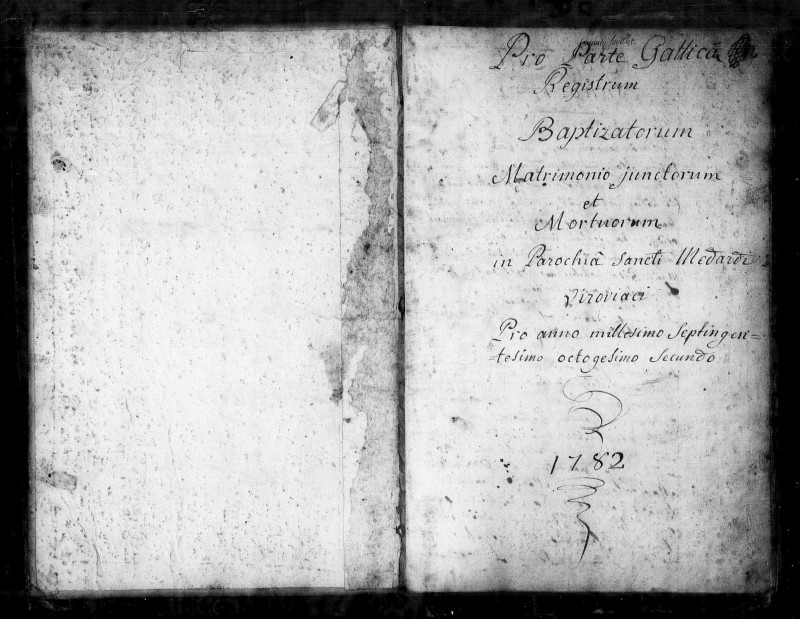 Pro Parte Gallicâ
Registrum
Baptizatorum
Matrimonio junctorum
et
Mortuorum
in Parochiâ Sancti Medardi
Viroviaci
Pro anno millesimo Septingen=
=tesimo octogesimo Secundo
1782